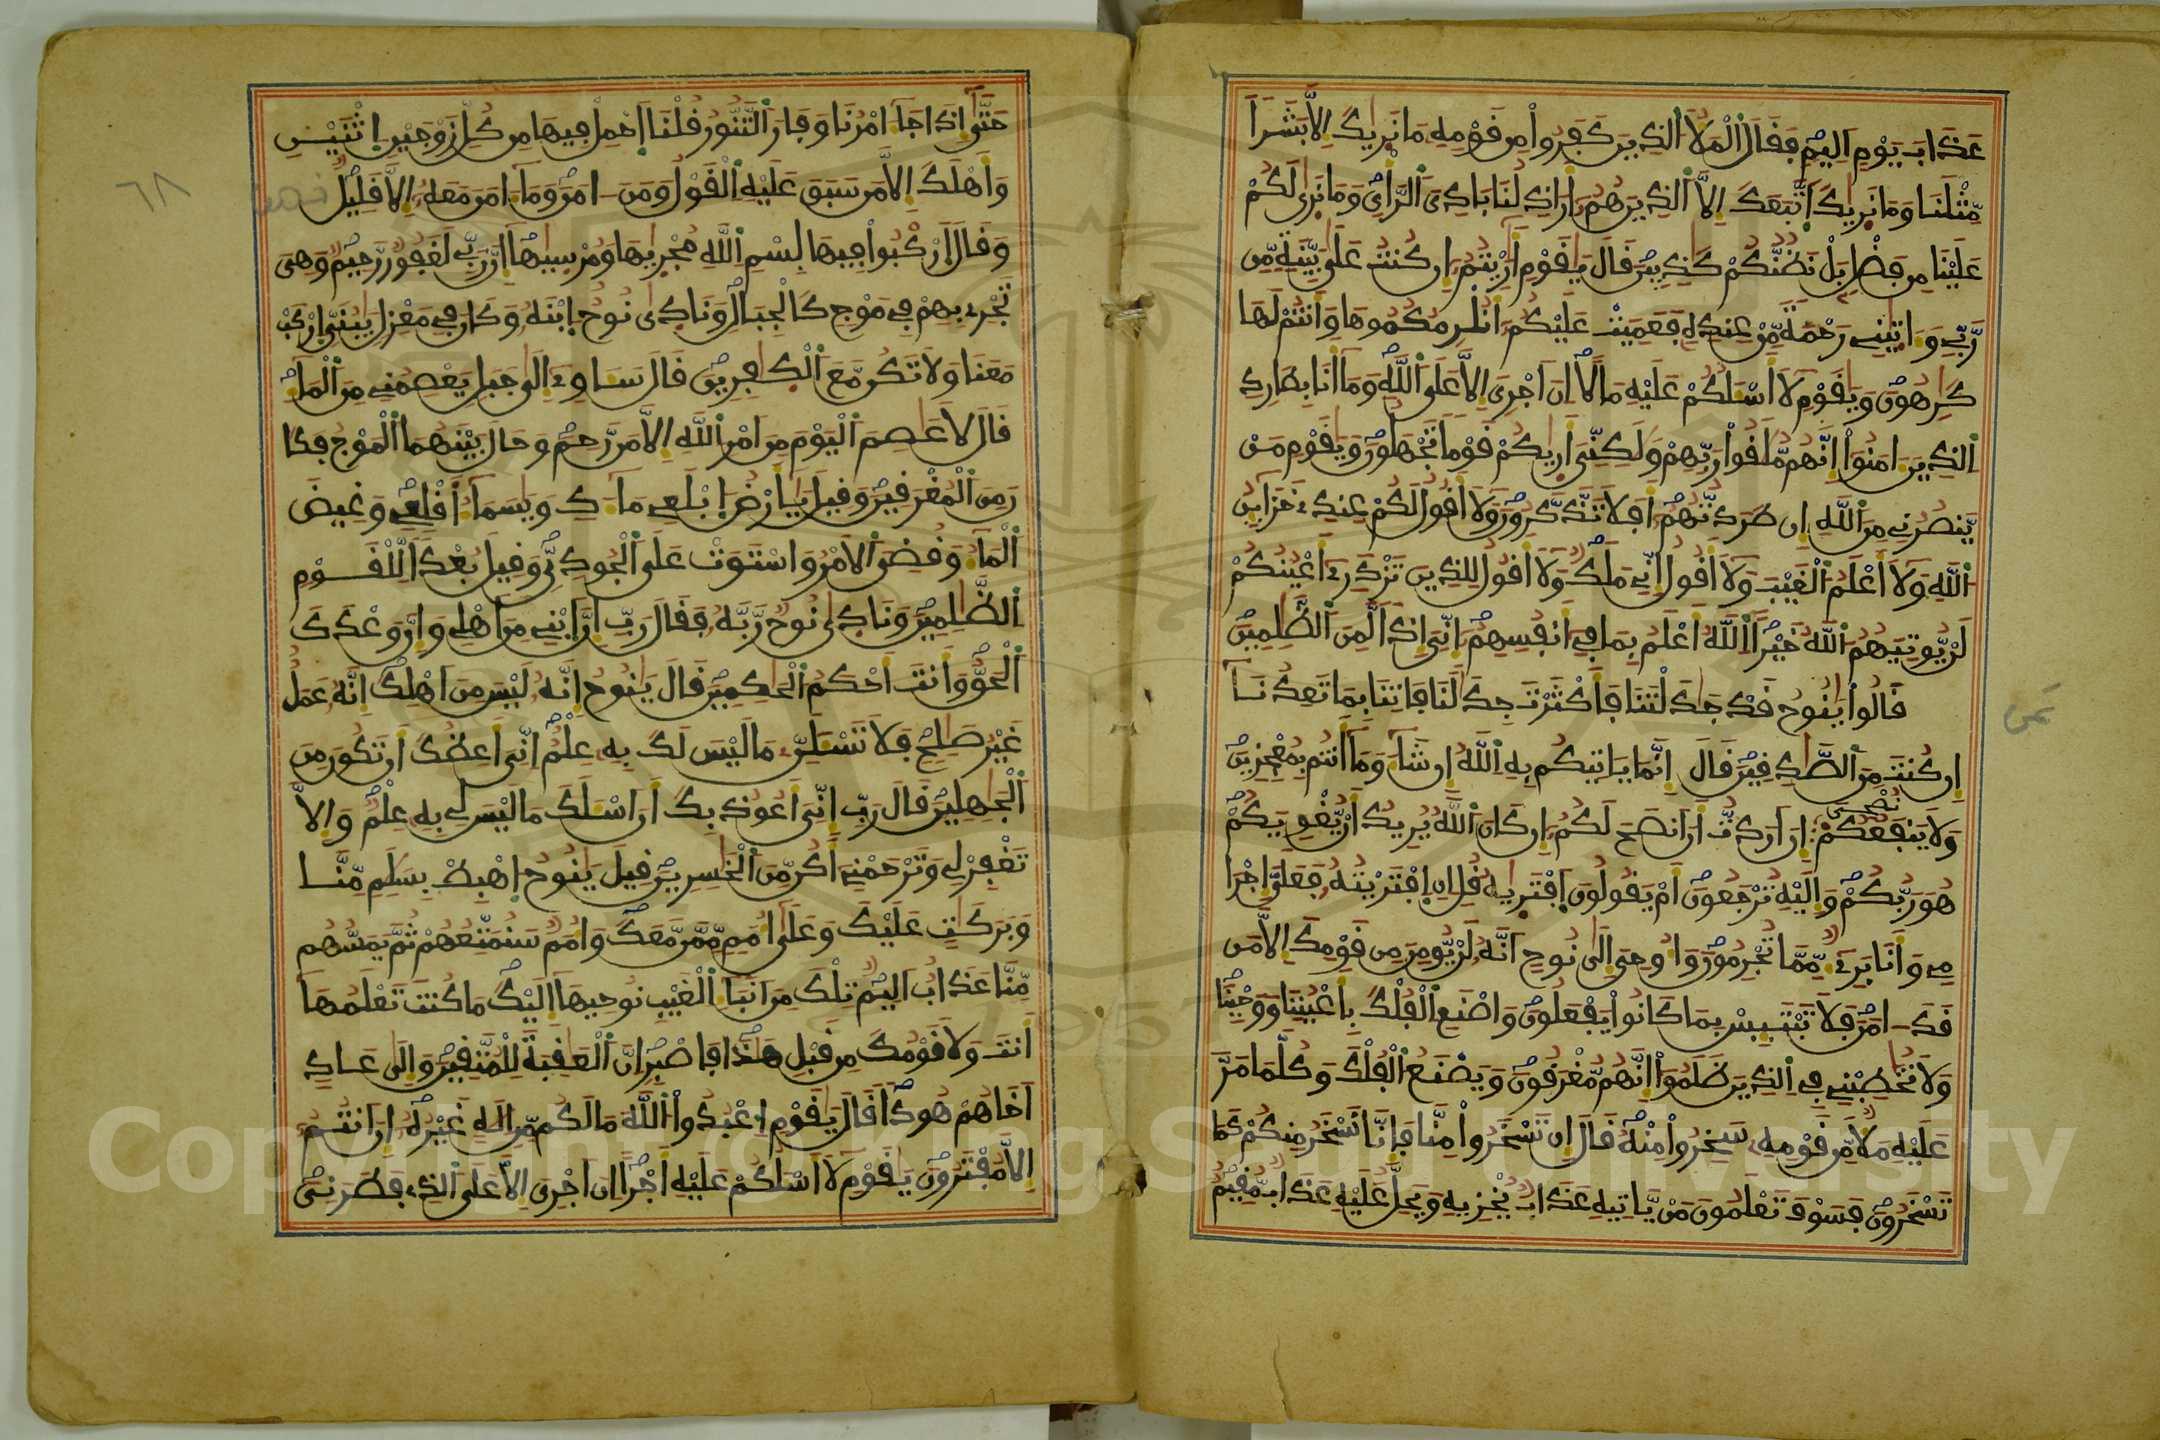 عَذَابَ يَوْمٍ اَلِيمٍ فَقَالَ اَلْمَلَأُ اُلذِينَ كَفَرُواْ مِن قَوْمِهِۦ مَا نَرٜيٰكَ إِلَّا بَشَراٗ
مِّثْلَنَا وَمَا نَرٜيٰكَ اَتَّبَعَكَ إِلَّا اَلذِينَ هُمُۥٓ أَرَاذِلُنَا بَادِيَ اَلرَّأْيِ وَمَا نَرٜىٰ لَكُمْ
عَلَيْنَا مِن فَضْلِۢ بَلْ نَظُنُّكُمْ كَٰذِبِينَ قَالَ يَٰقَوْمِ أَرَٰيْتُمُۥٓ إِن كُنتُ عَلَىٰ بَيِّنَةٖ مِّن
رَّبِّے وَءَاتٜيٰنِے رَحْمَةٗ مِّنْ عِندِهِۦ فَعَمِيَتْ عَلَيْكُمُۥٓ أَنُلْزِمُكُمُوهَا وَأَنتُمْ لَهَا
كَٰرِهُونَ وَيَٰقَوْمِ لَآ أَسْـَٔلُكُمْ عَلَيْهِ مَالًا اِنَ اَجْرِيَ إِلَّا عَلَى اَللَّهِ وَمَآ أَنَا بِطَارِدِ
اِلذِينَ ءَامَنُوٓاْ إِنَّهُم مُّلَٰقُواْ رَبِّهِمْ وَلَٰكِنِّيَ أَرٜيٰكُمْ قَوْماٗ تَجْهَلُونَ وَيَٰقَوْمِ مَنْ
يَّنصُرُنِے مِنَ اَللَّهِ إِن طَرَدتُّهُمُۥٓ أَفَلَا تَذَّكَّرُونَ وَلَآ أَقُولُ لَكُمْ عِندِے خَزَآئِنُ
اُللَّهِ وَلَآ أَعْلَمُ اُلْغَيْبَ وَلَآ أَقُولُ إِنِّے مَلَكٞ وَلَآ أَقُولُ لِلذِينَ تَزْدَرِےٓ أَعْيُنُكُمْ
لَنْ يُّوتِيَهُمُ اُللَّهُ خَيْراً اِللَّهُ أَعْلَمُ بِمَا فِےٓ أَنفُسِهِمُۥٓ إِنِّيَ إِذاٗ لَّمِنَ اَلظَّٰلِمِينَ
قَالُواْ يَٰنُوحُ قَدْ جَٰدَلْتَنَا فَأَكْثَرْتَ جِدَٰلَنَا فَاتِنَا بِمَا تَعِدُنَآ
إِن كُنتَ مِنَ اَلصَّٰدِقِينَ قَالَ إِنَّمَا يَاتِيكُم بِهِ اِللَّهُ إِن شَآءَ وَمَآ أَنتُم بِمُعْجِزِينَ
وَلَا يَنفَعُكُمْ نُصْحِيَ إِنَ اَرَدتُّ أَنَ اَنصَحَ لَكُمُۥٓ إِن كَانَ اَللَّهُ يُرِيدُ أَنْ يُّغْوِيَكُمْ
هُوَ رَبُّكُمْ وَإِلَيْهِ تُرْجَعُونَ أَمْ يَقُولُونَ اَفْتَرٜيٰهُ قُلِ اِنِ اِفْتَرَيْتُهُۥ فَعَلَيَّ إِجْرَا
مِے وَأَنَا بَرِےٓءٞ مِّمَّا تُجْرِمُونَ وَأُوحِيَ إِلَىٰ نُوحٍ اَنَّهُۥ لَنْ يُّومِنَ مِن قَوْمِكَ إِلَّا مَن
قَدَ ءَامَنَ فَلَا تَبْتَئِسْ بِمَا كَانُواْ يَفْعَلُونَ وَاصْنَعِ اِلْفُلْكَ بِأَعْيُنِنَا وَوَحْيِنَا
وَلَا تُخَٰطِبْنِے فِے اِلذِينَ ظَلَمُوٓاْ إِنَّهُم مُّغْرَقُونَ وَيَصْنَعُ اُلْفُلْكَ وَكُلَّمَا مَرَّ
عَلَيْهِ مَلَأٞ مِّن قَوْمِهِۦ سَخِرُواْ مِنْهُ قَالَ إِن تَسْخَرُواْ مِنَّا فَإِنَّا نَسْخَرُ مِنكُمْ كَمَا
تَسْخَرُونَ فَسَوْفَ تَعْلَمُونَ مَنْ يَّاتِيهِ عَذَابٞ يُخْزِيهِ وَيَحِلُّ عَلَيْهِ عَذَابٞ مُّقِيمٌ
ثمن
حَتَّىٰٓ إِذَا جَآءَ امْرُنَا وَفَارَ اَلتَّنُّورُ قُلْنَا اَحْمِلْ فِيهَا مِن كُلِّ زَوْجَيْنِ اِثْنَيْنِ
وَأَهْلَكَ إِلَّا مَن سَبَقَ عَلَيْهِ اِلْقَوْلُ وَمَنَ ءَامَنَ وَمَآ ءَامَنَ مَعَهُۥٓ إِلَّا قَلِيلٞ
وَقَالَ اَرْكَبُواْ فِيهَا بِسْمِ اِللَّهِ مُجْرٜيٰهَا وَمُرْسٜيٰهَآ إِنَّ رَبِّے لَغَفُورٞ رَّحِيمٞ وَهِيَ
تَجْرِے بِهِمْ فِے مَوْجٖ كَالْجِبَالِ وَنَادٜىٰ نُوحٌ اِبْنَهُۥ وَكَانَ فِے مَعْزِلٖ يَٰبُنَيِّ اِرْكَب
مَّعَنَا وَلَا تَكُن مَّعَ اَلْكٰ۪فِرِينَ قَالَ سَـَٔاوِےٓ إِلَىٰ جَبَلٖ يَعْصِمُنِے مِنَ اَلْمَآءِ
قَالَ لَا عَاصِمَ اَلْيَوْمَ مِنَ اَمْرِ اِللَّهِ إِلَّا مَن رَّحِمَ وَحَالَ بَيْنَهُمَا اَلْمَوْجُ فَكَا
نَ مِنَ اَلْمُغْرَقِينَ وَقِيلَ يَٰٓأَرْضُ اُ۪بْلَعِے مَآءَكِ وَيَٰسَمَآءُ اَقْلِعِے وَغِيضَ
اَلْمَآءُ وَقُضِيَ اَلَامْرُ وَاسْتَوَتْ عَلَى اَلْجُودِيِّ وَقِيلَ بُعْداٗ لِّلْقَوْمِ
اِلظَّٰلِمِينَ وَنَادٜىٰ نُوحٞ رَّبَّهُۥ فَقَالَ رَبِّ إِنَّ اَبْنِے مِنَ اَهْلِے وَإِنَّ وَعْدَكَ
اَلْحَقُّ وَأَنتَ أَحْكَمُ اُلْحَٰكِمِينَ قَالَ يَٰنُوحُ إِنَّهُۥ لَيْسَ مِنَ اَهْلِكَ إِنَّهُۥ عَمَلٌ
غَيْرُ صَٰلِحٖ فَلَا تَسْـَٔلَنِّۦ مَا لَيْسَ لَكَ بِهِۦ عِلْمٌ اِنِّيَ أَعِظُكَ أَن تَكُونَ مِنَ
اَلْجَٰهِلِينَ قَالَ رَبِّ إِنِّيَ أَعُوذُ بِكَ أَنَ اَسْـَٔلَكَ مَا لَيْسَ لِے بِهِۦ عِلْمٞ وَإِلَّا
تَغْفِرْ لِے وَتَرْحَمْنِےٓ أَكُن مِّنَ اَلْخَٰسِرِينَ قِيلَ يَٰنُوحُ اُ۪هْبِطْ بِسَلَٰمٖ مِّنَّا
وَبَرَكَٰتٍ عَلَيْكَ وَعَلَىٰٓ أُمَمٖ مِّمَّن مَّعَكَ وَأُمَمٞ سَنُمَتِّعُهُمْ ثُمَّ يَمَسُّهُم
مِّنَّا عَذَابٌ اَلِيمٞ تِلْكَ مِنَ اَنۢبَآءِ اِلْغَيْبِ نُوحِيهَآ إِلَيْكَ مَا كُنتَ تَعْلَمُهَآ
أَنتَ وَلَا قَوْمُكَ مِن قَبْلِ هَٰذَا فَاصْبِرِ اِنَّ اَلْعَٰقِبَةَ لِلْمُتَّقِينَ وَإِلَىٰ عَادٍ
اَخَاهُمْ هُوداٗ قَالَ يَٰقَوْمِ اِ۟عْبُدُواْ اُللَّهَ مَا لَكُم مِّنِ اِلَٰهٍ غَيْرُهُۥٓ إِنَ اَنتُمُۥٓ
إِلَّا مُفْتَرُونَ يَٰقَوْمِ لَآ أَسْـَٔلُكُمْ عَلَيْهِ أَجْراً اِنَ اَجْرِيَ إِلَّا عَلَى اَلذِے فَطَرَنِيَ
٦٨
Copyright © King Saud University